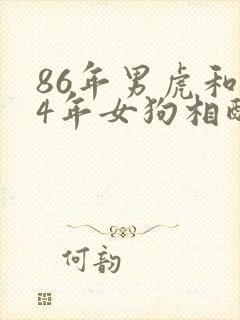 86年男虎和
4年女狗相配
何韵